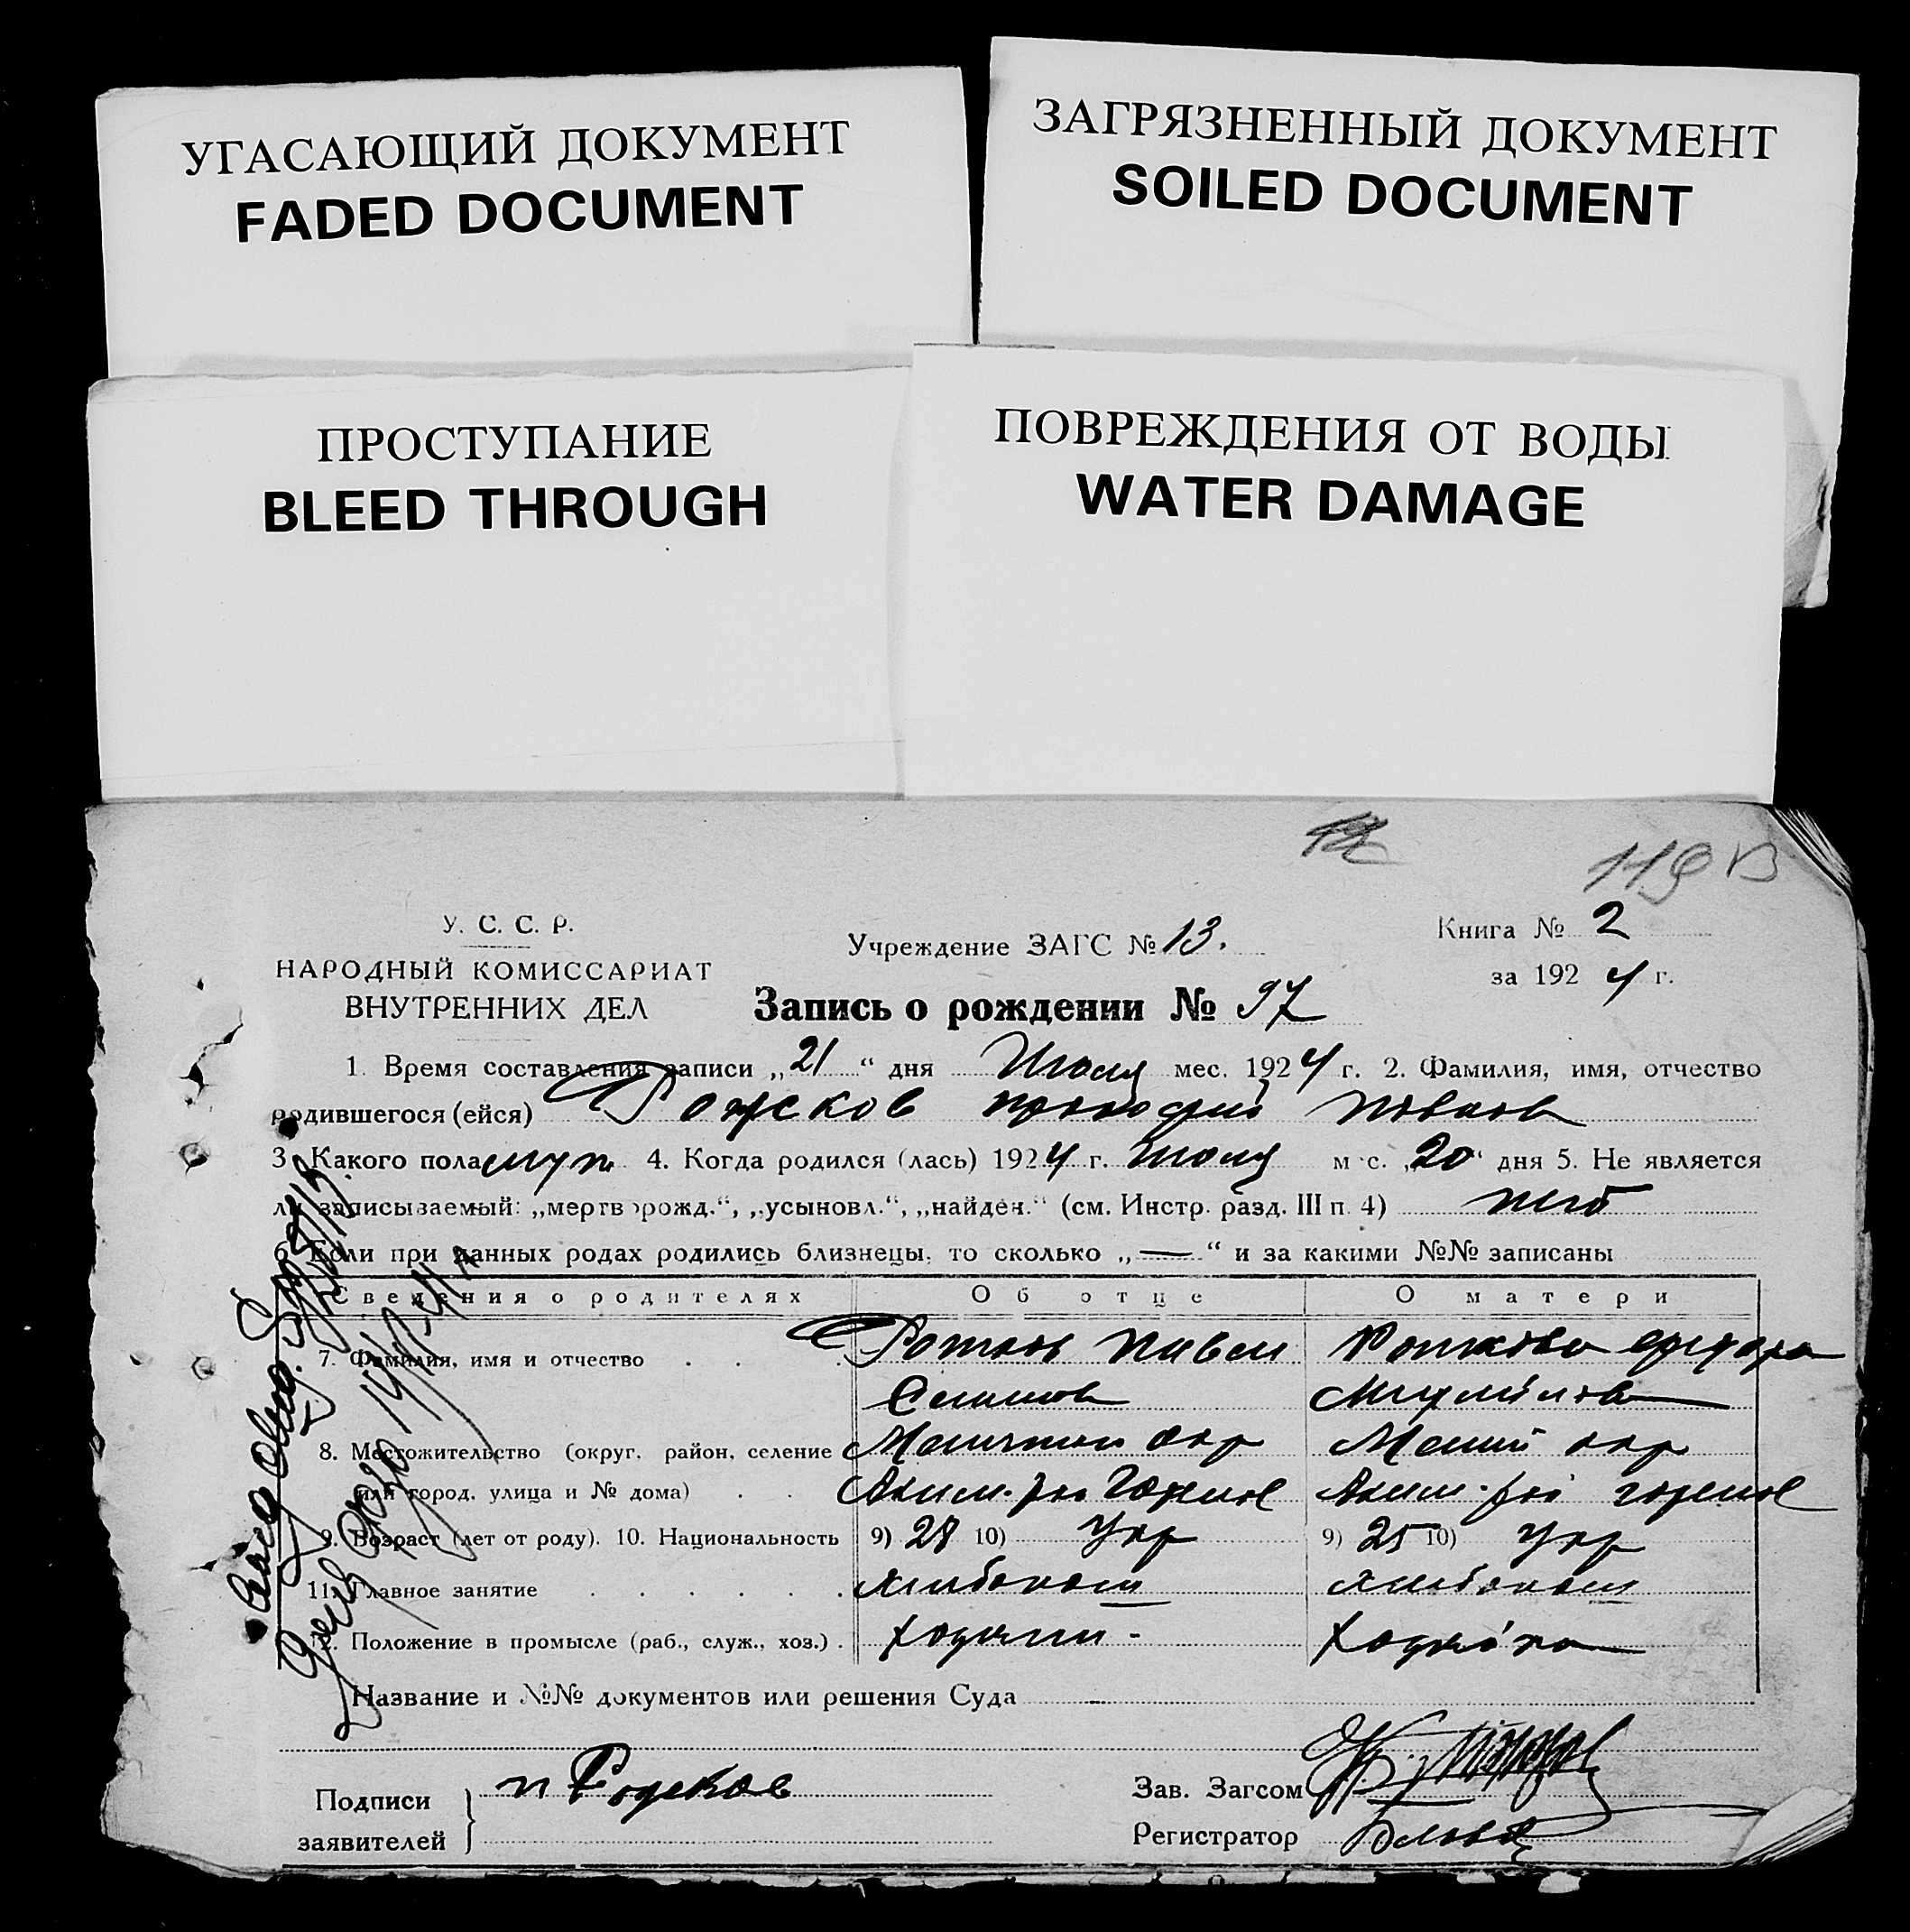 УГАСАЮЩИЙ ДОКУМЕНТ
FADED DOCUMENT
ЗАГРЯЗНЕННЫЙ ДОКУМЕНТ
SOILED DOCUMENT
ПРОСТУПАНИЕ
BLEED THROUGH
ПОВРЕЖДЕНИЯ ОТ ВОДЫ
WATER DAMAGE
119 В
У. С. С. Р.
НАРОДНЫЙ КОМИССАРИАТ
ВНУТРЕННИХ ДЕЛ
Учреждение ЗАГС № 13.
Книга № 2
за 1924 г.
Запись о рождении № 97
1. Время составления записи „21“ дня Июля мес. 1924 г. 2. Фамилия, имя, отчество
родившегося (ейся) Рожков Прокофий Павлов
3. Какого пола муж 4. Когда родился (лась) 1924 г. Июля мес. „20“ дня 5. Не является
ли записываемый: „мертворожд.“, „усыновл.“, „найден.“ (см. Инстр. разд. III п. 4) нет
6. Если при данных родах родились близнецы, то сколько „—“ и за какими №№ записаны
Сведения о родителях Об отце О матери
7. Фамилия, имя и отчество Павел
8. Местожительство (округ, район, селение окр окр
или город, улица и № дома)
9. Возраст (лет от роду). 10. Национальность 9) 28 10) Укр 9) 25 10) Укр
11. Главное занятие хлебопаш хлебопаш
12. Положение в промысле (раб., служ., хоз.)
Название и №№ документов или решения Суда
Подписи
заявителей
П Рожков
Зав. Загсом
Регистратор